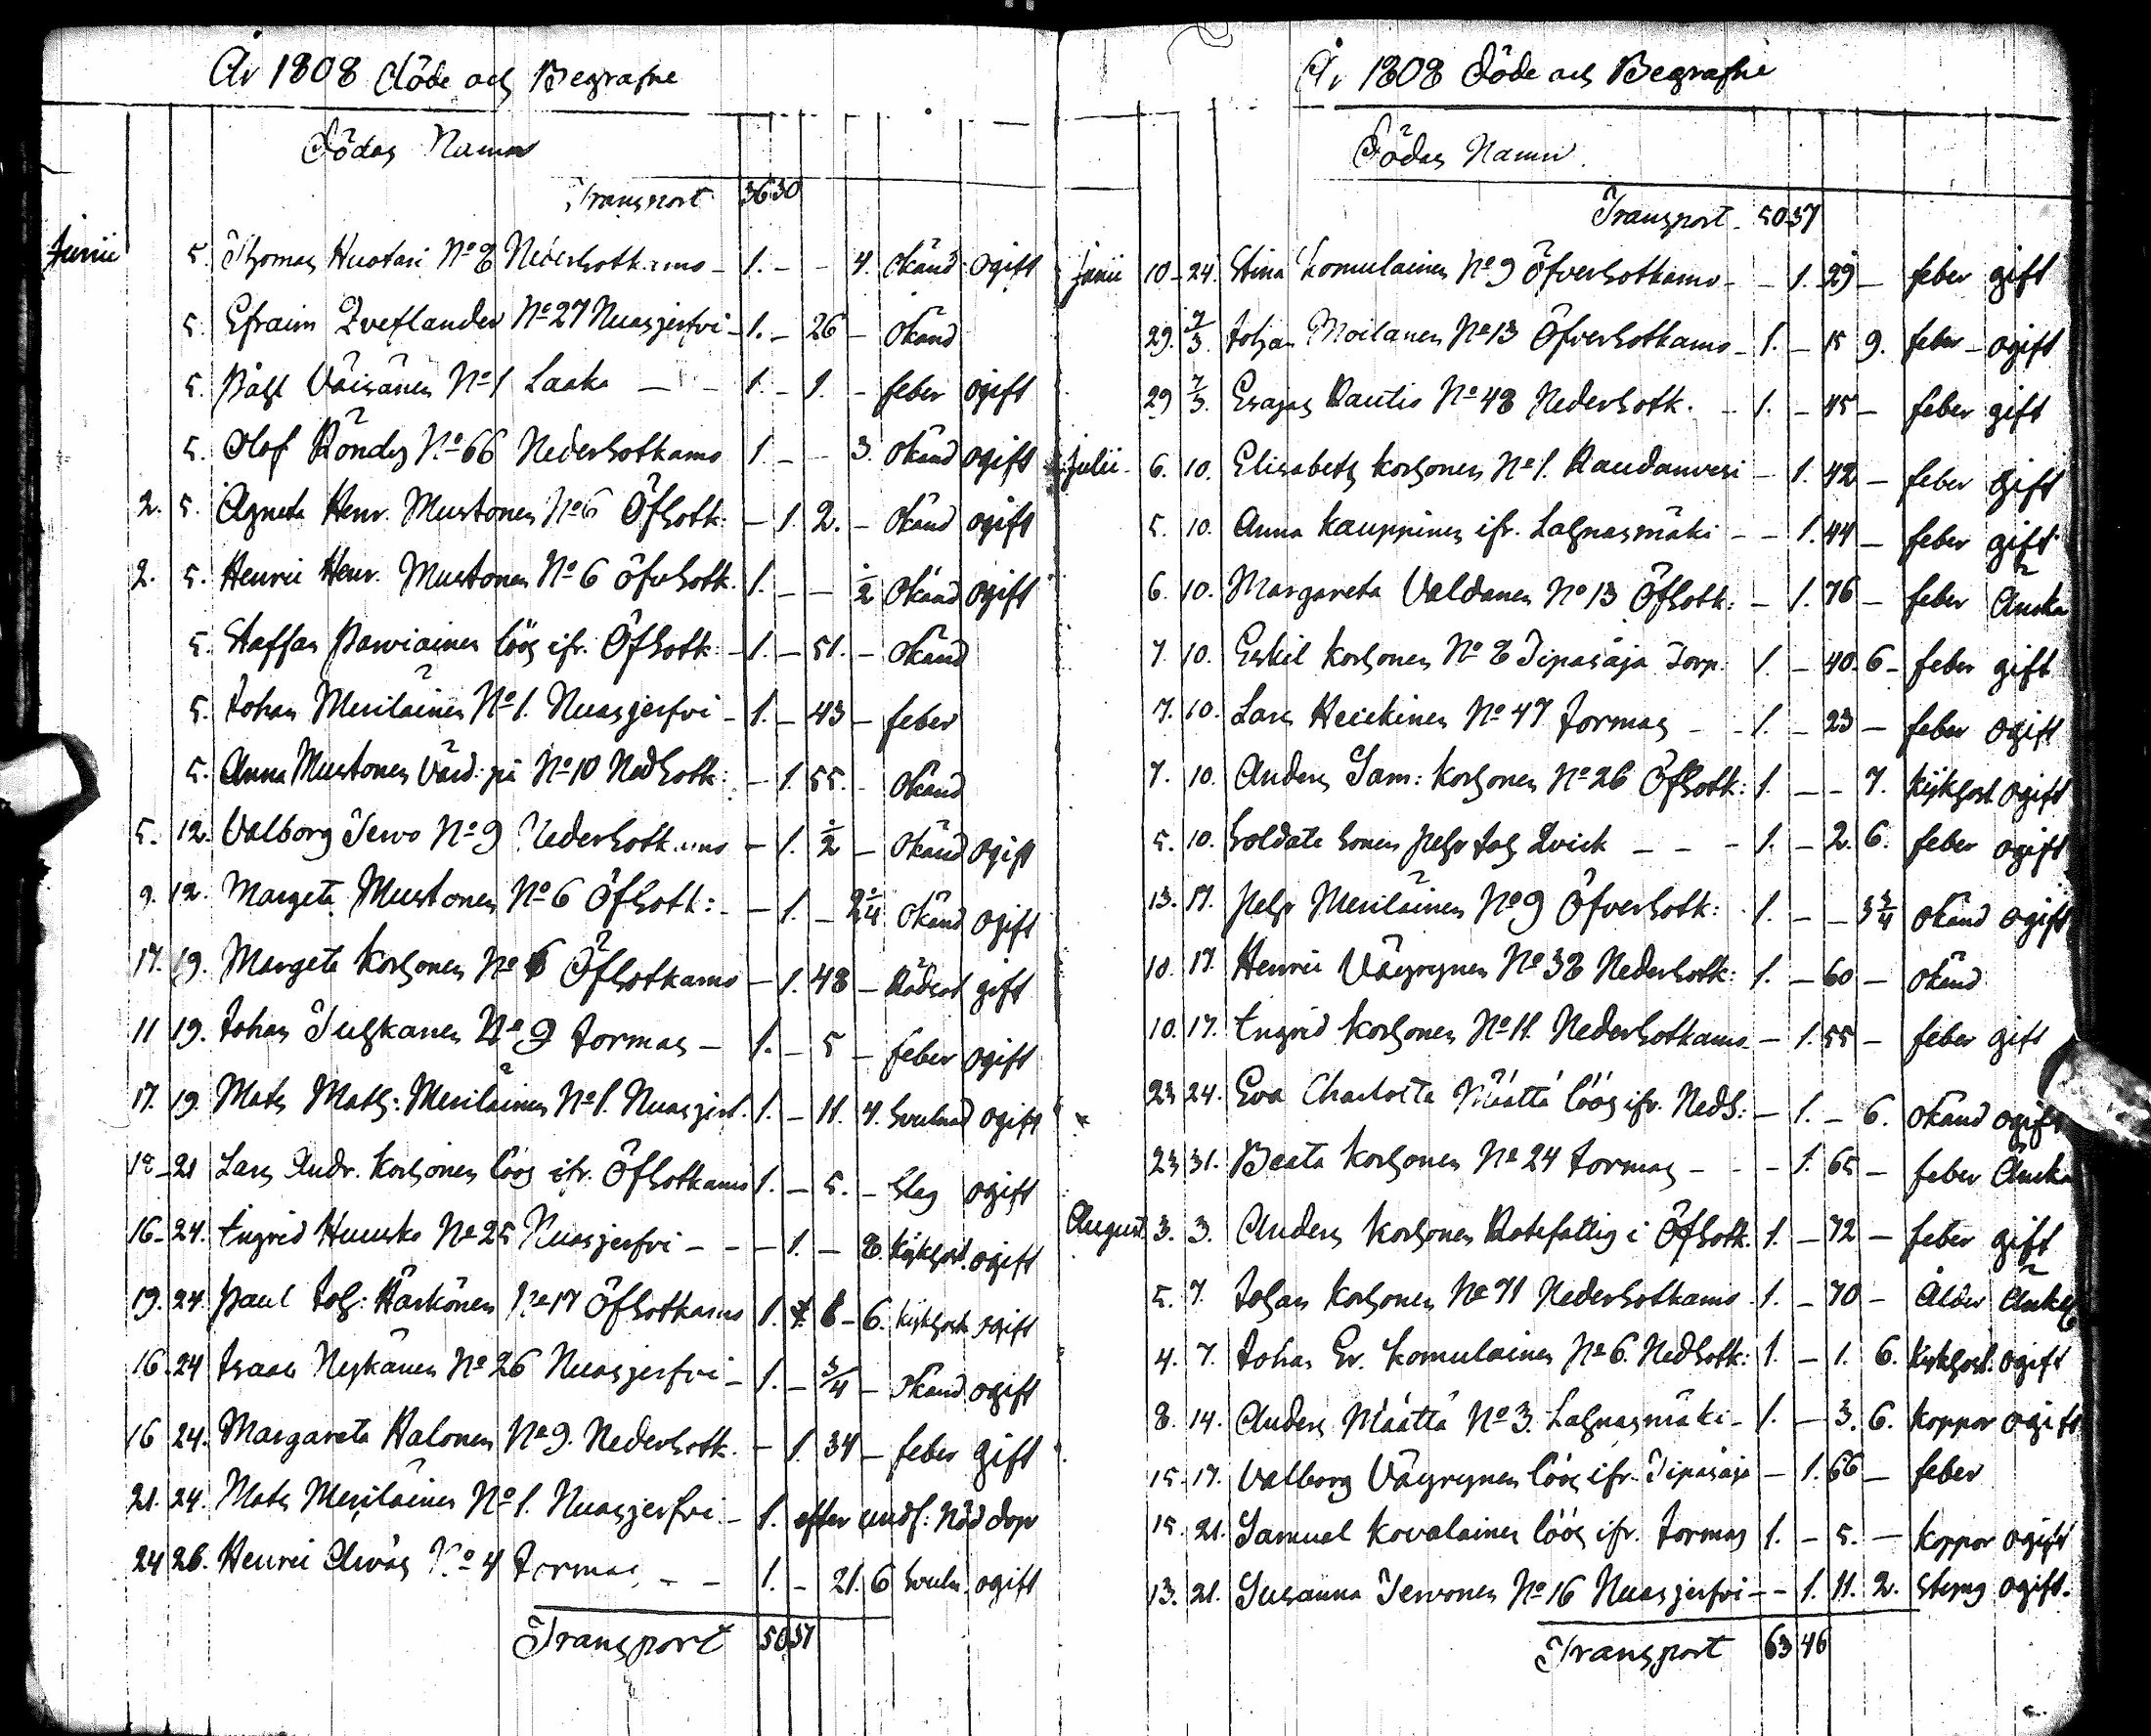 År 1808 Döde och Begrafne
Dödas Namn
Transport 36 30
Junii 5. Thomas Huotari No 8 Nedersotkamo - 1. - - 4. Okänd Ogift
5. Efraim Zvetlander No 27 Nuasjerfvi - 1. - 26 - Okänd
5. Påhl Väisänen No 1 Laaka - - 1. - 1. - feber ogift
5. Olof Röndy No 66 Nedersotkamo 1. - - 3. Okänd ogift
2. 5. Agneta Henr. Mustonen No 6 Öfsotk: - 1. 2. - Okänd ogift
2. 5. Henric Henr. Mustonen No 6 Öfvsotk. 1. - - 1/2 Okänd ogift
5. Staffan Parviainen löös ifr. Öfsotk: - 1. - 51. - Okänd
5. Johan Meriläinen No 1. Nuasjerfvi - 1. - 43 - feber
5. Anna Mustonen Värd: på No 10 Nedsotk: - 1. 55. - Okänd
5. 12. Valborg Tervo No 9 Nedersotkamo - 1. 1/2 - Okänd ogift
9. 12. Margeta Mustonen No 6 Öfsotk: - - 1. - 2 1/4 Okänd ogift
17. 19. Margeta Korhonen No 6 Öfsotkamo - 1. 48 - Rödsot gift
11 19. Johan Tuhkanen No 9 Jormas - 1. - 5 - feber ogift
17. 19. Mats Math: Meriläinen No 1. Nuasjerf. 1. - 11. 4. ogift
18 - 21 Lars Andr. Korhonen löös ifr. Öfsotkamo 1. - 5. - Slag ogift
16 - 24. Ingrid Huusko No 25 Nuasjerfvi - - - 1. - 8. Kikhost. ogift
19. 24 Paul Joh: Härkönen No 17 Öfsotkamo 1. 6 - 6. Kikhost ogift
16. 24 Isaac Neykänen No 26 Nuasjerfvi - 1. - 3/4 - Okänd ogift
16 24. Margareta Halonen No 9. Nedersotk. - 1. 34 - feber gift
21. 24. Mats Meriläinen No 1. Nuasjerfvi - 1. efter undf: Nöd dop
24 26. Henric No 4 Jormas - - 1. - 21. 6 ogift
Transport 50 37
År 1808 Döde och Begrafne
Dödas Namn
Transport 50 37
Junii 10 - 24. Stina Komulainen No 9 Öfversotkamo - - 1. 29 - feber gift
29. 7/3. Johan Moilanen No 13 Öfversotkamo - 1. - 15 9. feber - ogift
29 7/3. Esajas Rautio No 48 Nedersotk. - 1. - 45 - feber gift
Julii 6. 10. Elisabeth Korhonen No 1. Raudanvesi - 1. 42 - feber gift
5. 10. Anna Kauppinen ifr. Lahnasmäki - - 1. 44 - feber gift
6. 10. Margareta Valdanen No 13 Öfsotk: - 1. 76 - feber Ancka
7. 10. Eskil Korhonen No 8 Tipasoja Torp. 1. - 40. 6 - feber gift
7. 10. Lars Heickinen No 47 Jormas - - 1. - 23 - feber ogift
7. 10. Anders Sam: Korhonen No 26 Öfsotk: 1. - - 7. Kikhost ogift
5. 10. Soldate Sonen Pehr Joh Qvick - - - 1. - 2. 6. feber ogift
13. 17. Pehr Meriläinen No 9 Öfversotk: 1. - - 3 3/4 Okänd ogift
10. 17. Henric Väyrynen No 38 Nedersotk: 1. - 60 - Okänd
10. 17. Ingrid Korhonen No 11. Nedersotkamo - 1. 55 - feber gift
23 24. Eva Charlotta Määttä löös ifr. Neds: - 1. - 6. Okänd ogift
23 31. Beata Korhonen No 24 Jormas - - - 1. 65 - feber Ancka
August 3. 3. Anders Korhonen Rotefattig i Öfsotk. 1. - 72 - feber gift
5. 7. Johan Korhonen No 71 Nedersotkamo 1. - 70 - Ålder Anckl
4. 7. Johan Er. Komulainen No 6. Nedsotk: 1. - 1. 6. Kikhost. ogift
8. 14. Anders Määttä No 3. Lahnasmäki - 1. - 3. 6. Koppor ogift
15. 17. Valborg Väyrynen löös ifr. Tipasoja - 1. 66 - feber
15. 21. Samuel Kovalainen löös ifr. Jormas 1. - 5. - Koppor ogift
13. 21. Susanna Tervonen No 16 Nuasjerfvi - - 1. 11. 2. Styng ogift.
Transport 63 46